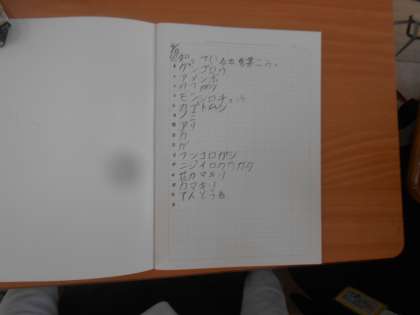 しっている虫を書こう。
・ゲンゴロウ
・アメンボ
・クワガタ
・モンシロチョウ
・カブトムシ
・ノミ
・アリ
・カ
・ガ
・フンコロガシ
・ニジイロクワガタ
・花カマキリ
・カマキリ
・てんとう虫
・